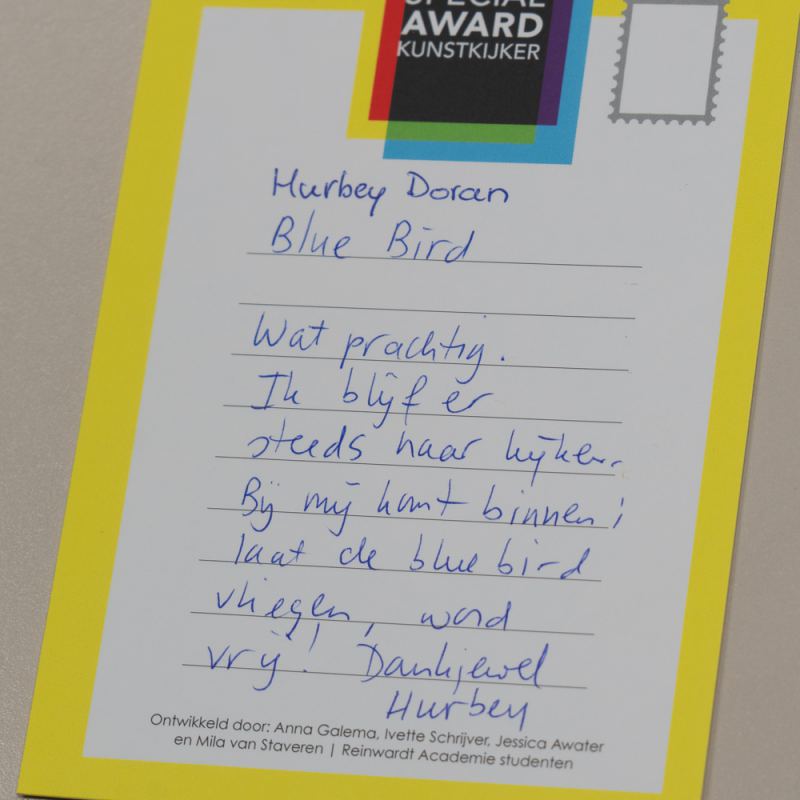 SPECIAL
AWARD
KUNSTKIJKER
Hurbey Doran
Blue Bird
Wat prachtig.
Ik blijf er
steeds naar kijken.
Bij mij komt binnen;
laat de blue bird
vliegen, word
vrij! Dankjewel
Hurbey
Ontwikkeld door: Anna Galema, Ivette Schrijver, Jessica Awater
en Mila van Staveren | Reinwardt Academie studenten